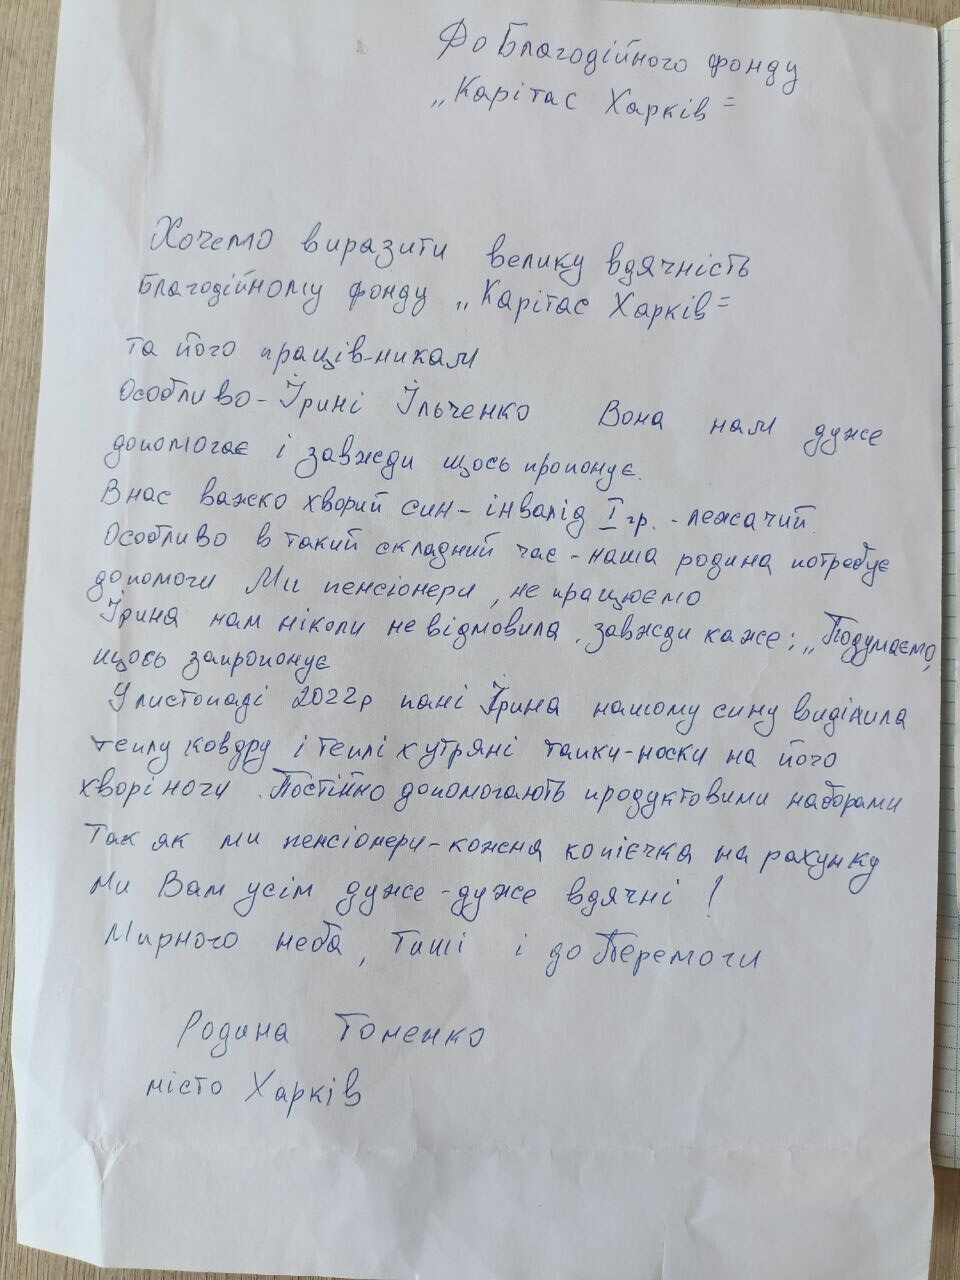 До Благодійного фонду
„Карітас Харків"
Хочемо виразити велику вдячність
Благодійному фонду „Карітас Харків"
та його праців-никам
Особливо - Ірині Ільченко Вона нам дуже
допомогає і завжди щось пропонує.
В нас важко хворий син - інвалід I гр. - лежачий.
Особливо в такий складний час - наша родина потребує
допомоги Ми пенсіонери, не працюємо
Ірина нам ніколи не відмовила, завжди каже: „Подумаємо,
щось запропонує
У листопаді 2022р пані Ірина нашому сину виділила
теплу ковдру і теплі хутряні тапки-носки на його
хворі ноги. Постійно допомогають продуктовими наборами
Так як ми пенсіонери - кожна копієчка на рахунку
Ми Вам усім дуже-дуже вдячні!
Мирного неба, Тиші і до Перемоги
Родина Тоненко
місто Харків